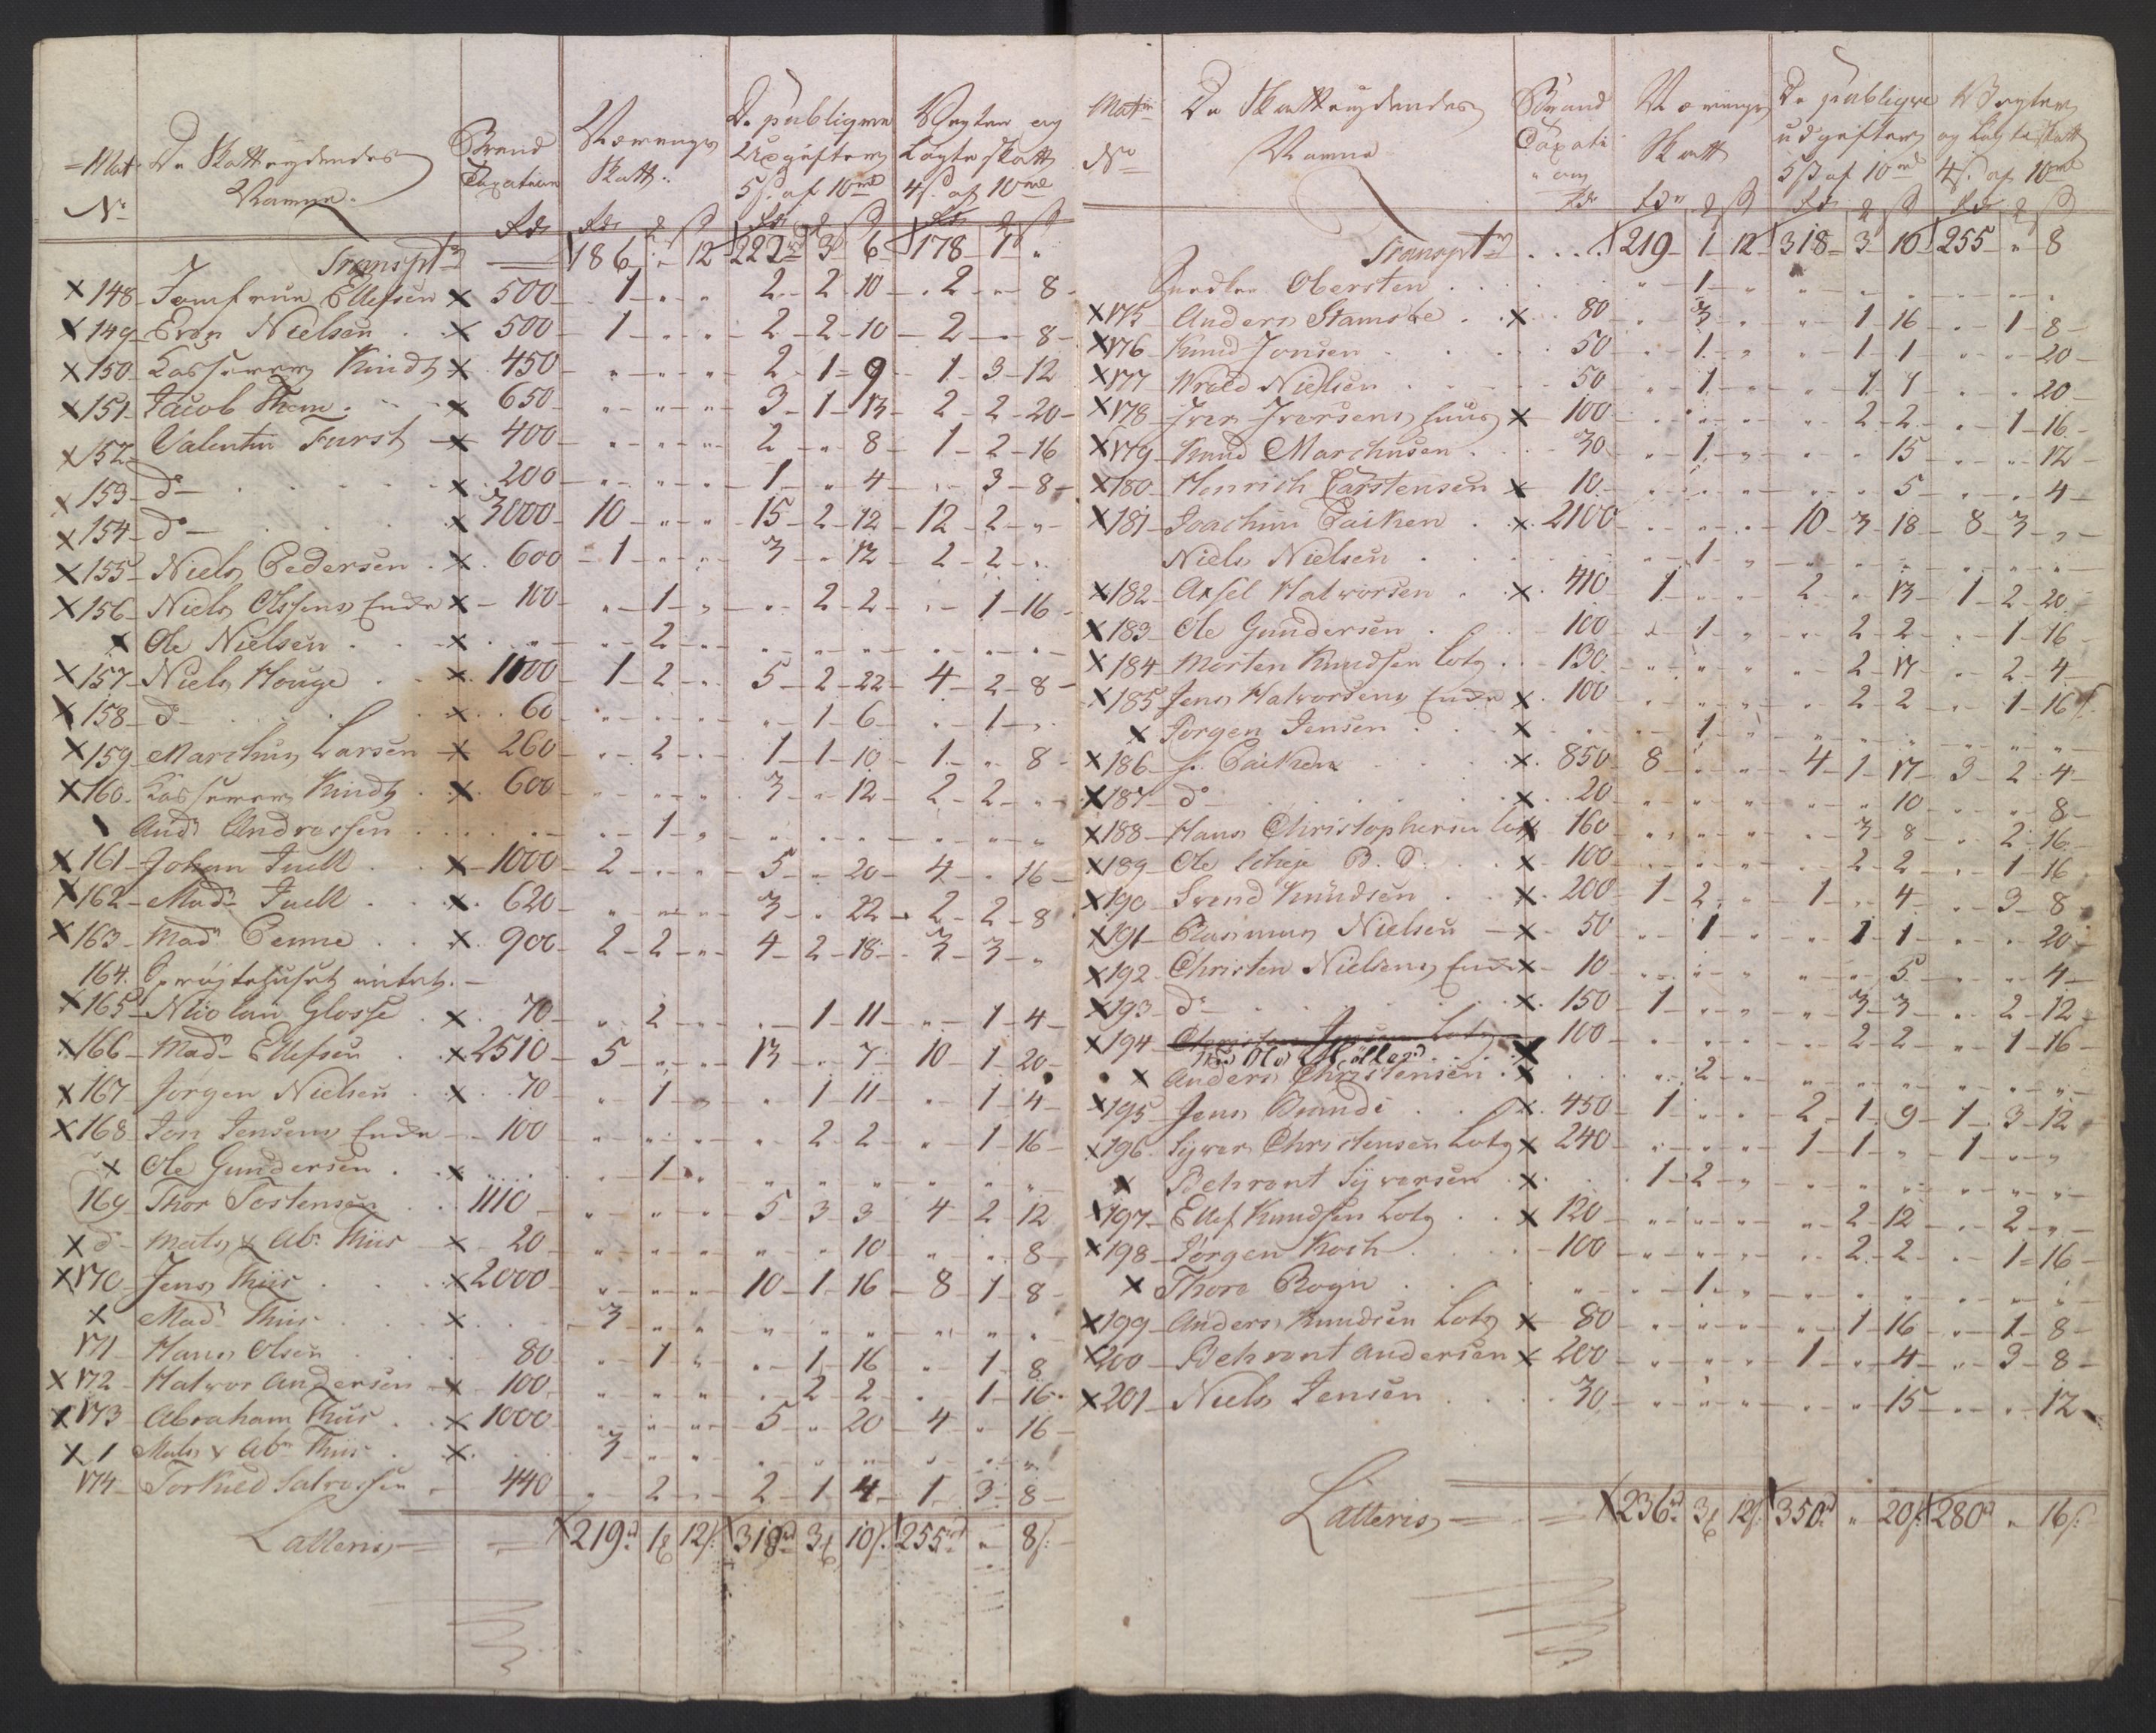 Mat: De Skatteydendes Brand Nærings De publique Vegter og
No Navne. Taxation Skatt. Udgifter Løgte skatt
5 ß. af 10 rd 4 ß. af 10 rd
Rdr Rdr ß Rdr ß Rdr ß
Transpt 186 - " - 12 222 - 3 - 6 178 - 1 - "
148 Jomfrue Ellefsen 500 - 1 - " - " 2 - 2 - 10 2 - " - 8
149 Even Nielsen 500 - 1 - " - " 2 - 2 - 10 2 - " - 8
150 Kasserer Kindt 450 " - " - " 2 - 1 - 9 1 - 3 - 12
151 Jacob Thom 650 " - " - " 3 - 1 - 13 2 - 2 - 20
152 Valentin Furst 400 " - " - " 2 - " - 8 1 - 2 - 16
153 do 200 " - " - " 1 - " - 4 " - 3 - 8
154 do 3000 10 - " - " 15 - 2 - 12 12 - 2 - "
155 Niels Pedersen 600 1 - " - " 3 - " - 12 2 - 2 - "
156 Niels Olssens Enke 100 " - 1 - " " - 2 - 2 " - 1 - 16
Ole Nielsen " " - 2 - " " - " - " " - " - "
157 Niels Houge 1100 1 - 2 - " 5 - 2 - 22 4 - 2 - 8
158 do 60 " - " - " " - 1 - 6 " - 1 - "
159 Marchus Larsen 260 " - 2 - " 1 - 1 - 10 1 - " - 8
160 Kasserer Kindt 600 " - " - " 3 - " - 12 2 - 2 - "
And: Andressen " - 1 - " " - " - " " - " - "
161 Johan Juell 1000 2 - " - " 5 - " - 20 4 - " - 16
162 Mad: Juell 620 " - " - " 3 - " - 22 2 - 2 - 8
163 Mad: Penne 900 2 - 2 - " 4 - 2 - 18 3 - 3 - "
164. Sprøjtehuset intet. -
165 Nicolay Glosse 70 " - 2 - " " - 1 - 11 " - 1 - 4
166 Mad: Ellefsen 2510 5 - " - " 13 - " - 7 10 - 1 - 20
167 Jørgen Nielsen 70 " - 1 - " " - 1 - 11 " - 1 - 4
168 Jon Jensens Enke 100 " - " - " " - 2 - 2 " - 1 - 16
Ole Gundersen " - 1 - " " - " - " " - " - "
169 Thor Tostensen 1110 " - " - " 5 - 3 - 3 4 - 2 - 12
do Mats & Abr. Thiis 20 " - " - " " - " - 10 " - " - 8
170 Jens Thiis 2000 " - " - " 10 - 1 - 16 8 - 1 - 8
Mad: Thiis 3 - " - " " - " - " " - " - "
171 Hans Olsen 80 " - 1 - " " - 1 - 16 " - 1 - 8
172 Halvor Andersen 100 " - " - " " - 2 - 2 " - 1 - 16
173 Abraham Thiis 1000 " - " - " 5 - " - 20 4 - " - 16
Mats & Abr. Thiis 3 - " - " " - " - " " - " - "
174 Torkild 440 " - 2 - " 2 - 1 - 4 1 - 3 - 8
Latteris 219 1 12 ß. 318 3 10 ß. 255 " 8 ß.
Matr De Skatteydendes Brand Nærings De publique Vegter
No Navne Taxati Skatt udgifter og Løgte skatt
on 5 ß af 10 rd 4 ß. af 10 rd
Rdr Rdr ß Rdr ß Rdr ß
Transpt 219 - 1 - 12 318 - 3 - 10 255 - " - 8
Obersten " - 1 - " " - " - " " - " - "
175 Anders Stamsøe 80 " - 3 - " " - 1 - 16 " - 1 - 8
176 Knud Jonsen 50 " - 1 - " " - 1 - 1 " - " - 20
177 Wrold Nielsen 50 " - 1 - " " - 1 - 1 " - " - 20
178 Iver Iversens huus 100 " - " - " " - 2 - 2 " - 1 - 16
179 Knud Marchusen 30 " - 1 - " " - " - 15 " - " - 12
180 Henrich Carstensen 10 " - " - " " - " - 5 " - " - 4
181 Joachim Paiken 2100 " - " - " 10 - 3 - 18 8 - 3 - "
Niels Nielsen " - 1 - " " - " - " " - " - "
182 Axsel Halvorsen 410 1 - " - " 2 - " - 13 1 - 2 - 20
183 Ole Gundersen 100 " - 1 - " " - 2 - 2 " - 1 - 16
184 Morten Knudsen Lots 130 " - " - " " - 2 - 17 " - 2 - 4
185 Jens Halvorsens Enke 100 " - " - " " - 2 - 2 " - 1 - 16
Jørgen Jensen " - 1 - " " - " - " " - " - "
186 J. Paiken 850 8 - " - " 4 - 1 - 17 3 - 2 - 4
187 do 20 " - " - " " - " - 10 " - " - 8
188 Hans Christophersen Lots 160 " - " - " " - 3 - 8 " - 2 - 16
189 Ole Scheje B. S. 100 " - " - " " - 2 - 2 " - 1 - 16
190 Svend Knudsen 200 1 - 2 - " 1 - " - 4 " - 3 - 8
191 Rasmus Nielsen 50 " - 1 - " " - 1 - 1 " - " - 20
192 Christen Nielsens Enke 10 " - " - " " - " - 5 " - " - 4
193 do 150 1 - " - " " - 3 - 3 " - 2 - 12
194 Christen Jensen Lots 100 " - " - " " - 2 - 2 " - 1 - 16
Ole
Anders Christensen " - 2 - " " - " - " " - " - "
195 Jens Brandt 450 1 - " - " 2 - 1 - 9 1 - 3 - 12
196 Syver Christensen Lots 240 " - " - " 1 - 1 - " 1 - " - "
Behrent Syversen 1 - 2 - " " - " - " " - " - "
197 Ellef Knudsen Lots 120 " - " - " " - 2 - 12 " - 2 - "
198 Jørgen Koch 100 " - " - " " - 2 - 2 " - 1 - 16
Thore Bogn " - 1 - " " - " - " " - " - "
199 Anders Knudsen Lots 80 " - " - " " - 1 - 16 " - 1 - 8
200 Behrent Andersen 200 " - " - " 1 - " - 4 " - 3 - 8
201 Niels Jensen 30 " - " - " " - " - 15 " - " - 12
Latteris 236 3 12 ß. 350 " 20 ß. 280 " 16 ß.